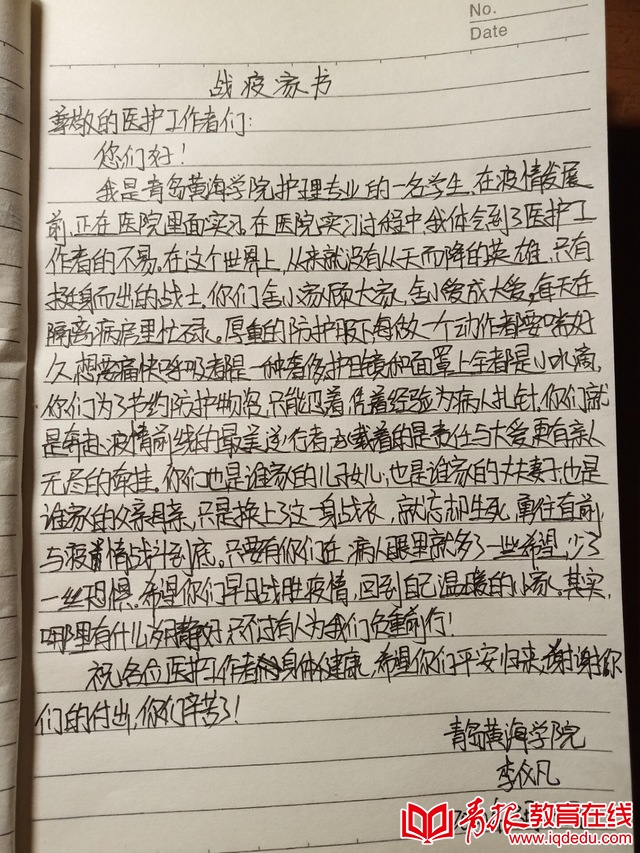 No.
Date
战疫家书
尊敬的医护工作者们:
您们好!
我是青岛黄海学院护理专业的一名学生,在疫情发展
前,正在医院里面实习。在医院实习过程中我体会到了医护工
作者的不易。在这个世界上,从来就没有从天而降的英雄,只有
挺身而出的战士,你们舍小家顾大家,舍小爱成大爱,每天在
隔离病房里忙碌。厚重的防护服下,每做一个动作者要喘好
久,想要痛快呼吸都是一种奢侈,护目镜和面罩上全都是小水滴,
你们为了节约防护物资,只能凭着经验为病人扎针,你们就
是奔赴疫情前线的最美逆行者,承载着的是责任与大爱,更有亲人
无尽的牵挂。你们也是谁家的儿子女儿,也是谁家的丈夫妻子,也是
谁家的父亲母亲,只是换上了这一身战衣,就忘却生死,勇往直前,
与疫情战斗到底。只要有你们在,病人眼里就多了一些希望,少了
一丝恐惧。希望你们早日战胜疫情,回到自己温暖的小家。其实,
哪里有什么岁月静好,只不过有人为我们负重前行!
祝各位医护工作者们身体健康,希望你们平安归来,谢谢你
们的付出,你们辛苦了!
青岛黄海学院
李仪凡
青报教育在线
www.iqdedu.com